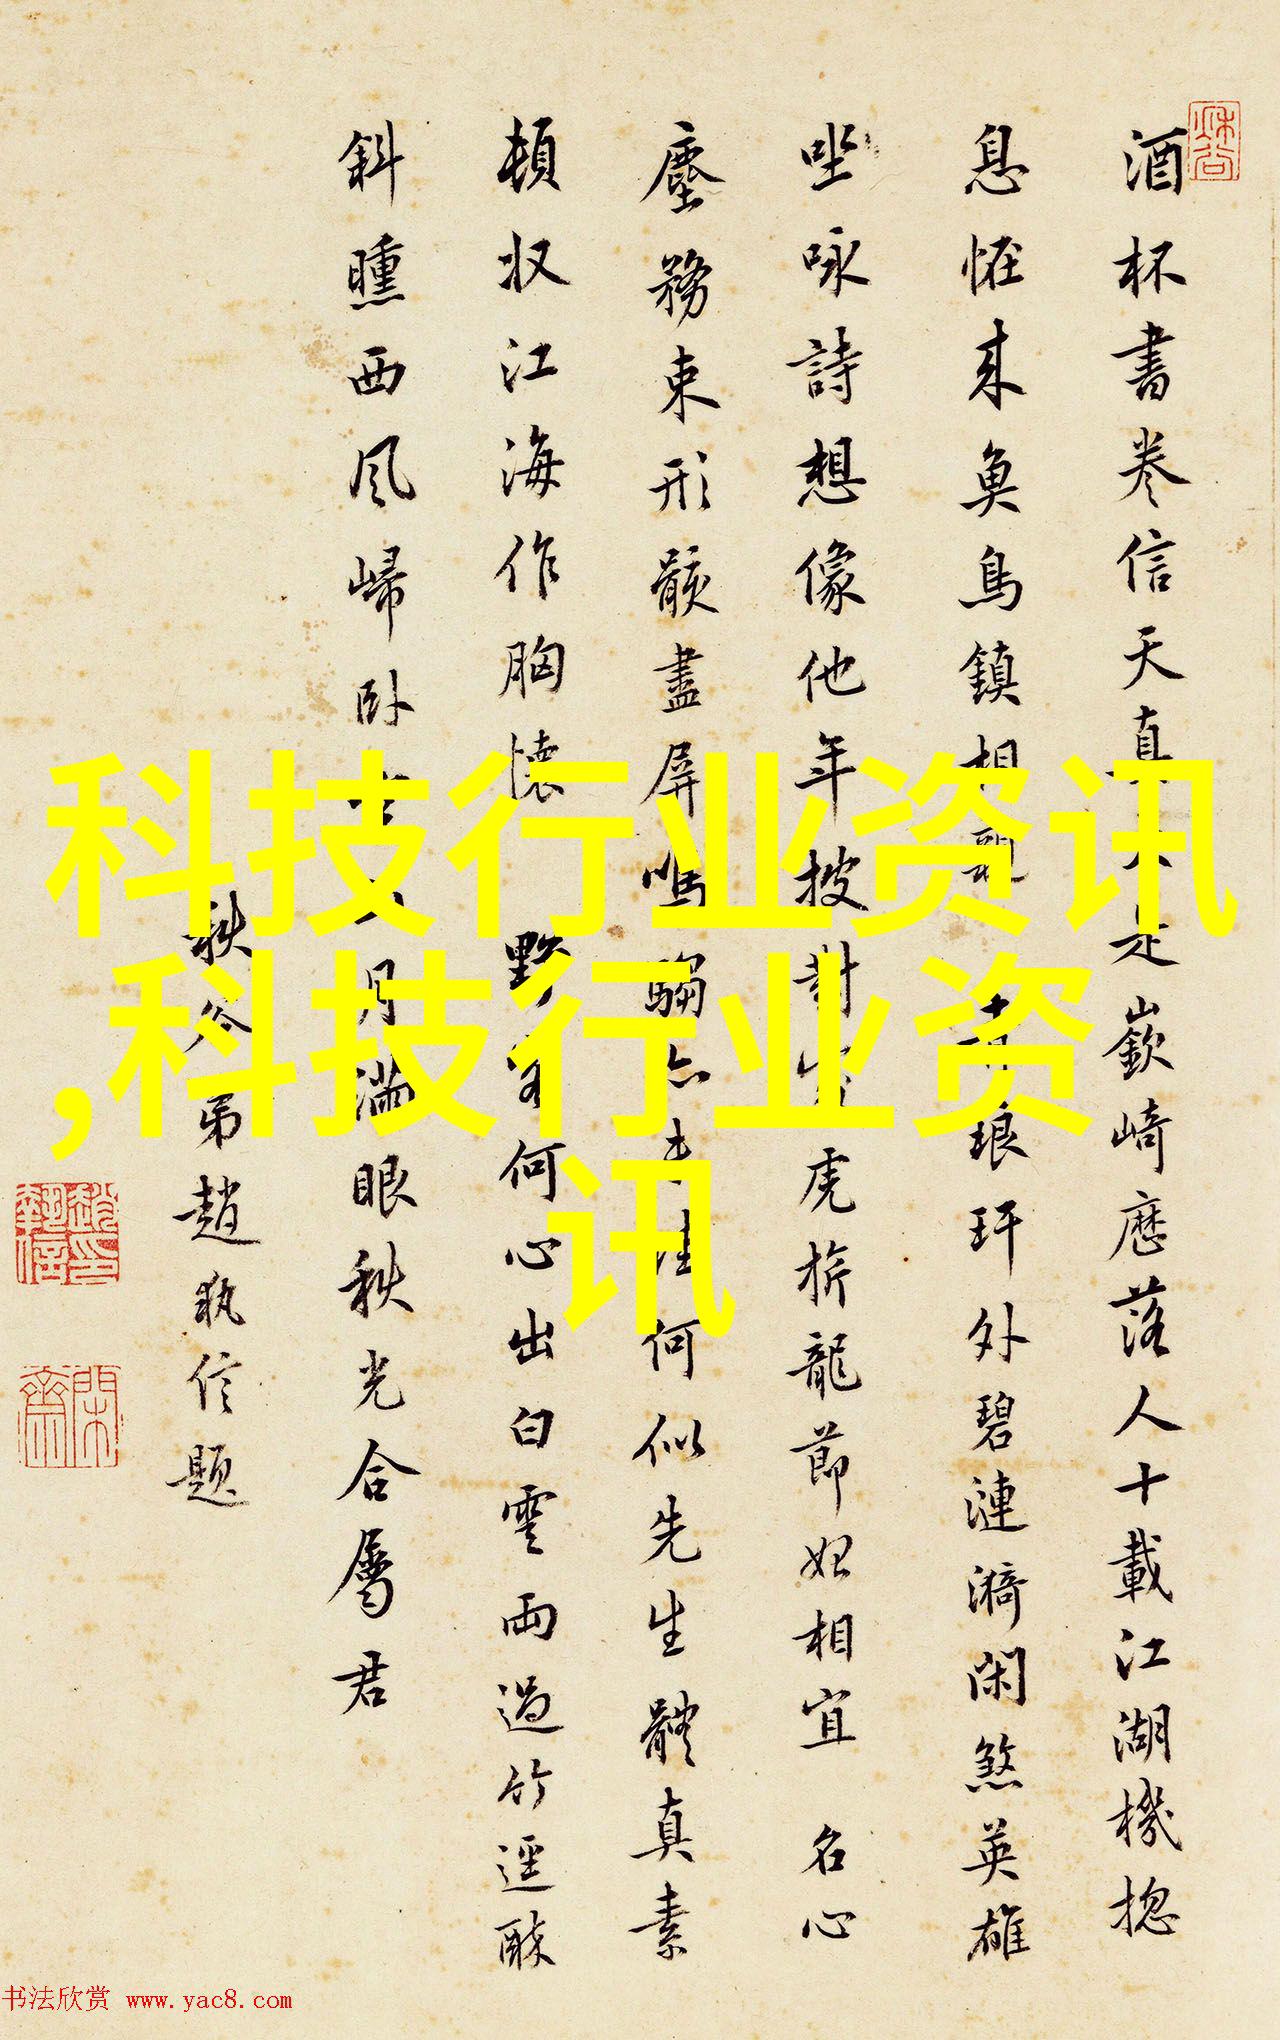 酒杯書卷信天真是嶔崎歷落人十載江湖機揔
息恠來魚鳥鎮相親琅玕外碧漣漪閑煞英雄
坐咏詩想像他年披對虎旂龍節妙相宜名心
塵務束形骸盡屏何似先生體真素
頓收江海作胸懷野何心出白雲雨過竹逕酥
斜曛西風歸卧月滿眼秋光合屬君
秋谷弟趙執信題
科技行业资讯
,科技行业资
讯
书法欣赏 www.yac8.com